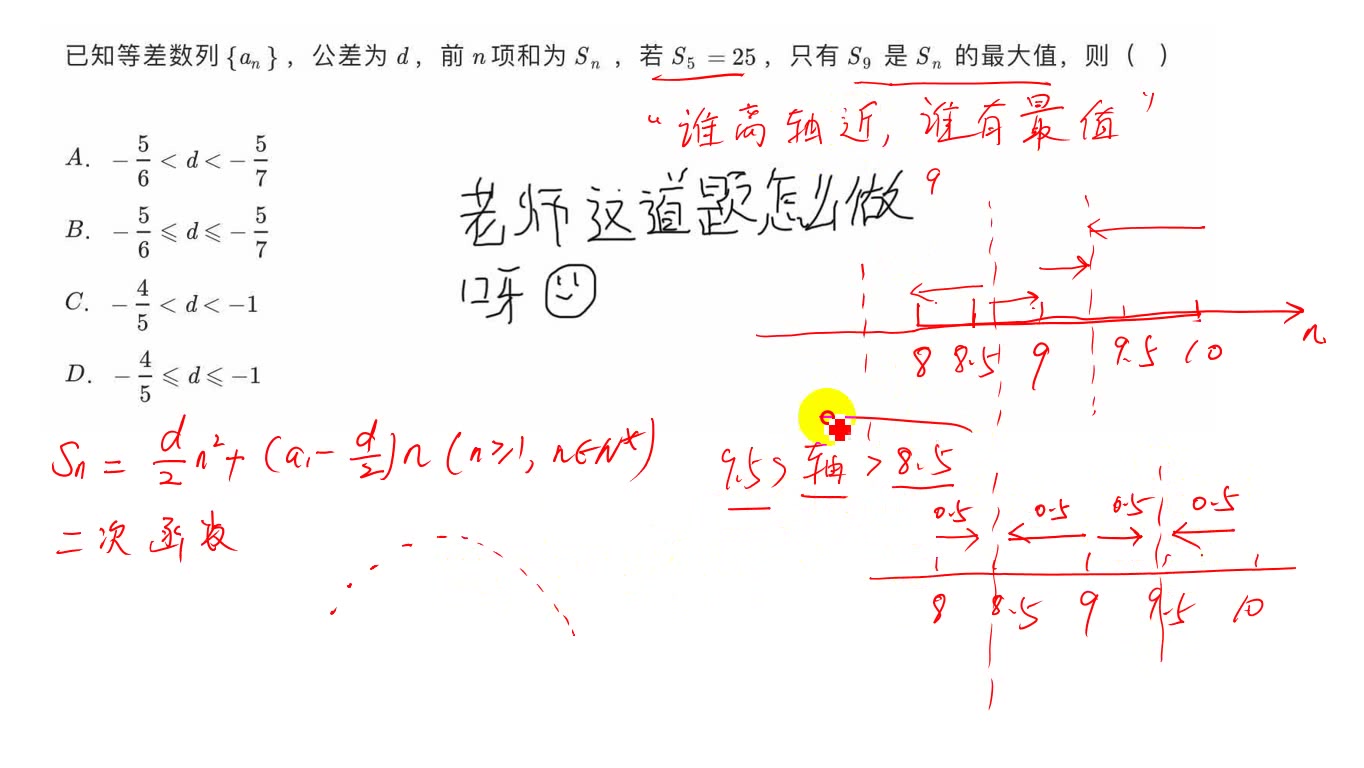 已知等差数列 {aₙ}，公差为 d，前 n 项和为 Sₙ，若 S₅ = 25，只有 S₉ 是 Sₙ 的最大值，则（ ）
“谁离轴近，谁有最值”
A. −5/6 < d < −5/7
B. −5/6 ⩽ d ⩽ −5/7
C. −4/5 < d < −1
D. −4/5 ⩽ d ⩽ −1
老师这道题怎么做
口牙
9
8 8.5 9 9.5 10
n
Sₙ = d/2 n² + (a₁ − d/2)n (n≥1, n∈N*)
二次函数
9.5 > 轴 > 8.5
0.5 0.5 0.5 0.5
8 8.5 9 9.5 10